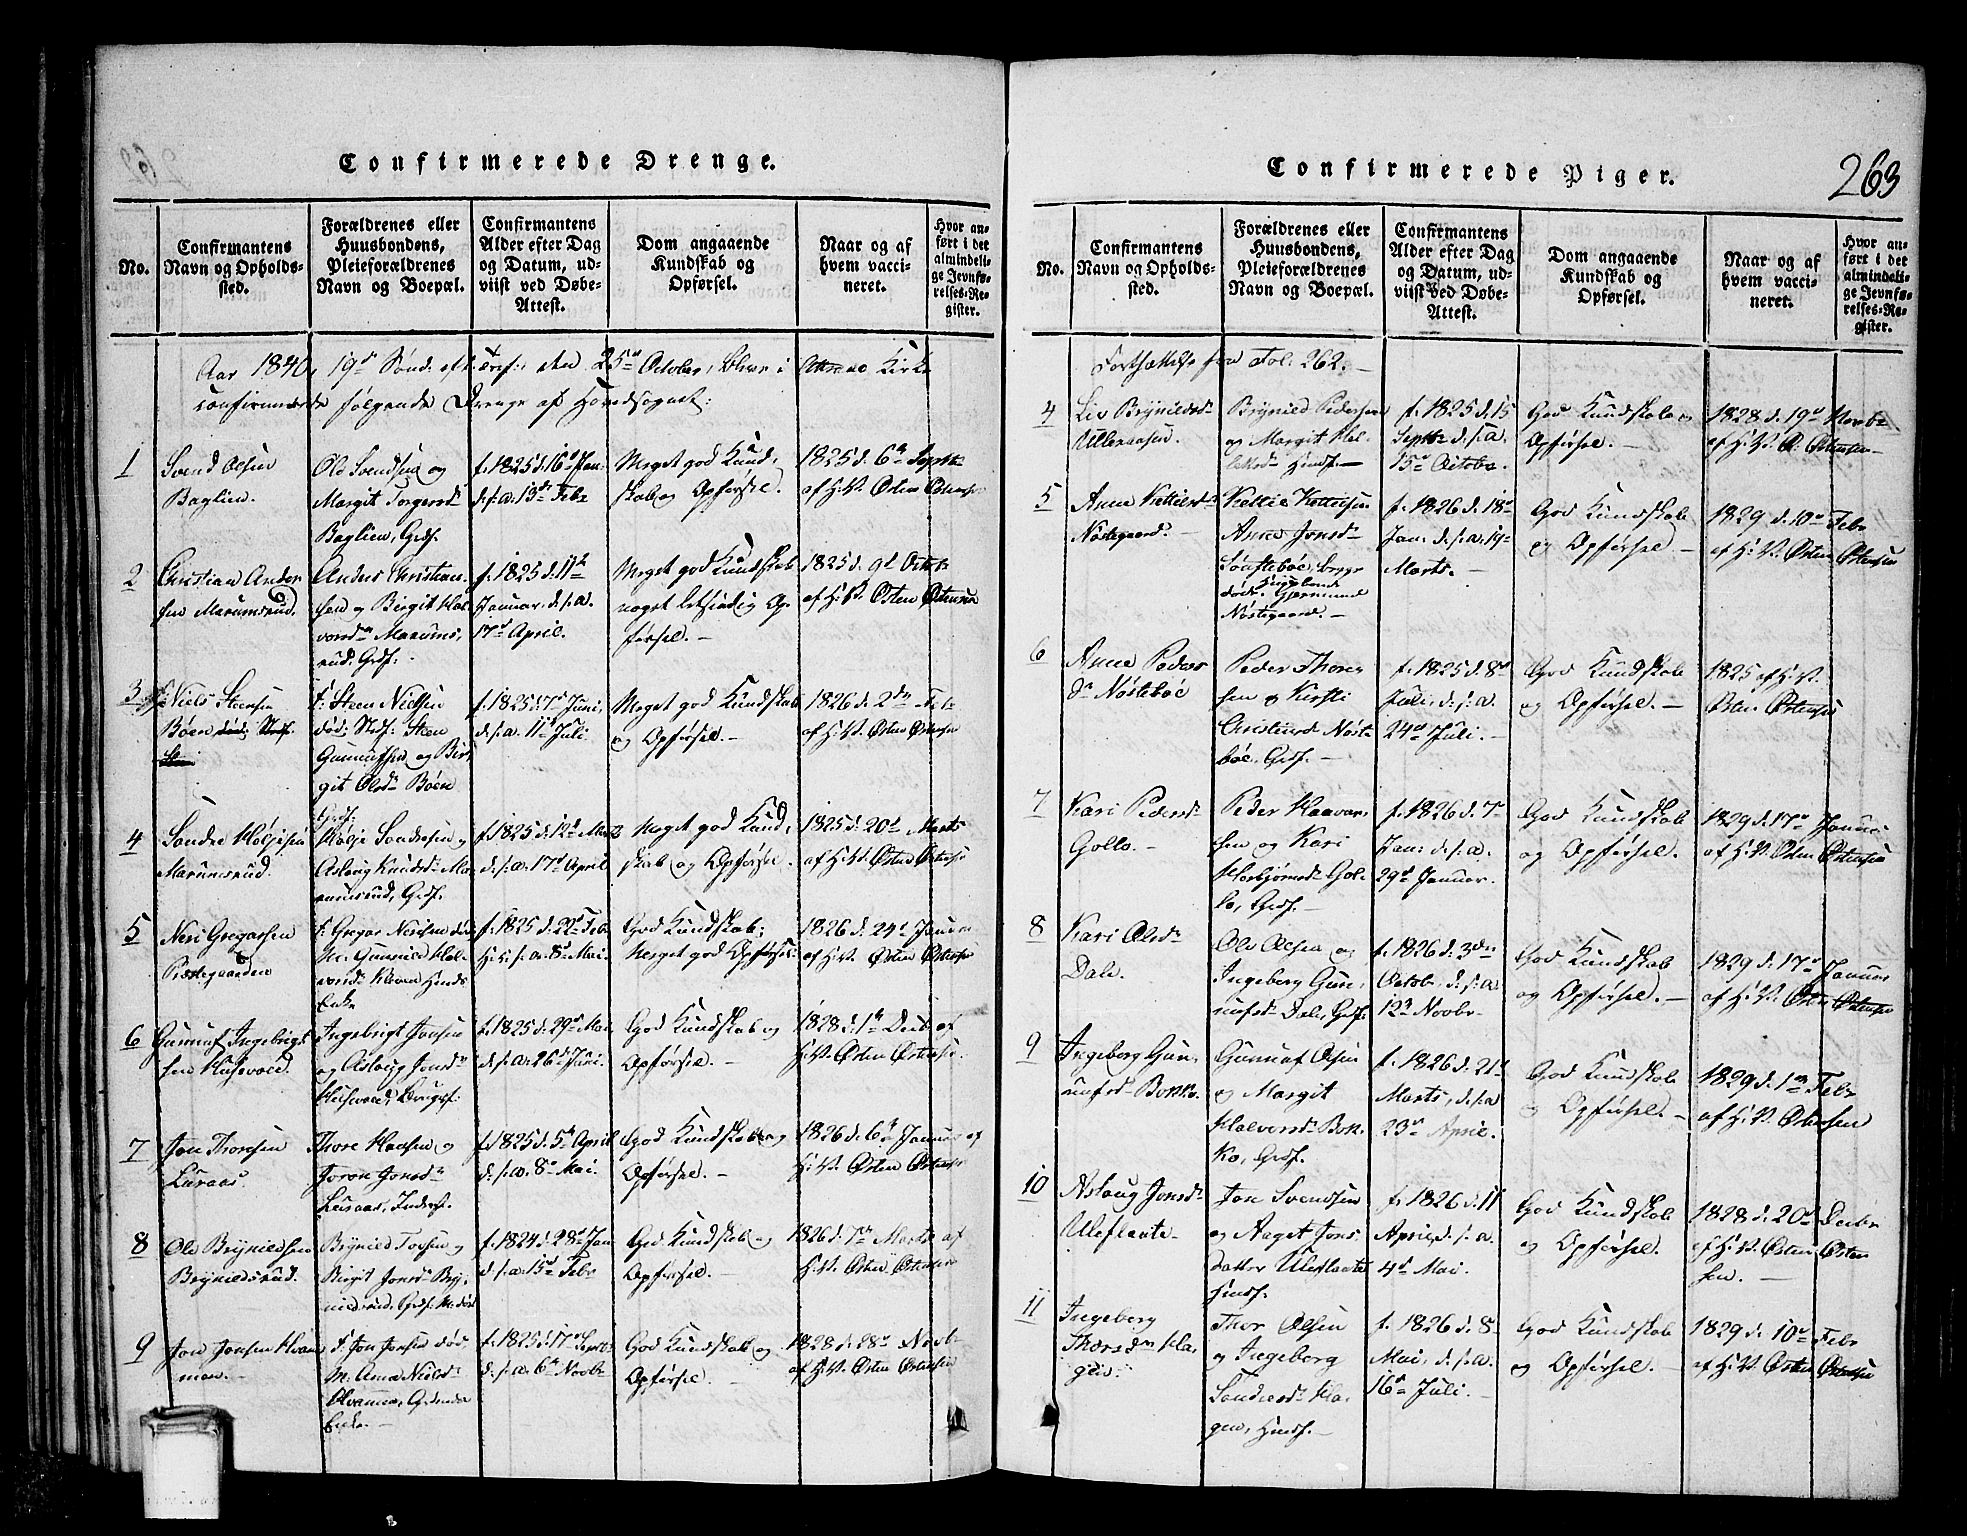 Confirmerede Drenge.
No.
Confirmantens
Navn og Opholds-
sted.
Forældrenes eller
Huusbondens,
Pleieforældrenes
Navn og Boepæl.
Confirmantens
Alder efter Dag
og Datum, ud-
viist ved Døbe-
Attest.
Dom angaaende
Kundskab og
Opførsel.
Naar og af
hvem vacci-
neret.
Hvor an-
ført i det
almindeli-
ge Jevnfø-
relses-Re-
gister.
Aar 1840, 19de Sønd. eft. Tref: den 25de October, blev i Kirke
confirmerede følgende Drenge af Hovedsognet:
1
Svend Olsen
Baglien.
Ole Svendsen og
Margit Torgersdr
Baglien, Grdf.
f. 1825 d. 16d Jan.
d. s. a. 13de Febr
Meget god Kund,
skab og Opførsel.
1825 d. 6te Septbr
af H.V. Østen Østensen
2
Christian Ander
sen Marumsrud.
Anders Christian,
sen og Birgit Hal
vorsdr Maarums,
rud. Grdf:
f. 1825 d. 11te
Januar, d. s. a.
17d April.
Meget god Kundskab
noget letsindig Op
førsel. —
1825 d. 9d Octob
af H.V. Østen Østensen
3
Niels Steensen
Bøen
F: Steen Nielsen
død: Stdf: Sten
Gunnufsen og Bir
git Olsdr Bøen
Grdf.
f. 1825 d. 17d Juni,
d. s. a. 11te Juli.
Meget god Kundskab
og Opførsel. —
1826 d. 2den Feb
af H.V. Østen Østensen
4
Sondre Høljesen
Marumsrud.
Hølje Sondresen og
Aslaug Knudsdr Ma
rumsrud, Grdf.
f. 1825 d. 12d Marts
d. s. a. 17d April
Meget god Kund,
skab og Opførsel.
1825 d. 20d Marts
af H.V. Østen Østensen
5
Neri Gregarsen
Præstegaarden
F: Gregar Nerisen død
M: Gunnild Hal
vorsdr Kleven Hmds
Enke
f. 1825 d. 22d Febr
H: i: s. a. 8d Mai.
God Kundskab;
Meget god Opførsel.
1826 d. 24d Januar
af H.V. Østen Østensen
6
Gunnuf Ingebrigt
sen Husevold.
Ingebrigt Jonsen
og Aslaug Jonsdr
Husevold, Brugsf:
f. 1825 d. 29d Mai
d. s. a. 26d Juni.
God Kundskab og
Opførsel. —
1828 d. 1te Decbr af
H.V. Østen Østensen.
7
Jon Thorsen
Luraas.
Thore Hansen og
Joron Jonsdr
Luraas, Inderf.
f. 1825 d. 5te April
d. s. a. 8de Mai.
God Kundskab og
Opførsel. —
1826 d. 6te Januar af
H.V. Østen Østensen
8
Ole Brynildsen
Brynildsrud.
Brynild Torsen og
Birgit Jonsdr Bry,
nildsrud, Grdf. M: død
f. 1824 d. 28d Jan
d. s. a. 15d Febr
God Kundskab og
Opførsel. —
1826 d. 7de Marts af
H.V. Østen Østensen
9
Jon Jonsen Hvam
men. —
F. Jon Jonsen død,
M. Anne Nielsdr
Hvammen, Grdmds
Enke. —
f. 1825 d. 17d Septbr
d. s. a. 6te Novbr
God Kundskab og
Opførsel. —
1828 d. 28d Novbr
af H.V. Østen Østensen
Confirmerede Piger.
263
No.
Confirmantens
Navn og Opholds-
sted.
Forældrenes eller
Huusbondens,
Pleieforældrenes
Navn og Boepæl.
Confirmantens
Alder efter Dag
og Datum, ud-
viist ved Døbe-
Attest.
Dom angaaende
Kundskab og
Opførsel.
Naar og af
hvem vacci-
neret.
Hvor an-
ført i det
almindeli-
ge Jevnfø-
relses-Re-
gister.
Fortsættelse fra Fol: 262. —
4
Liv Brynildsdr
Brynild Pedersen
og Margit
Hmdf. —
f. 1825 d. 15
Septbr d. s. a.
15d Octobr.
God Kundskab og
Opførsel. —
1828 d. 19d Novbr
af H.V. Ø. Østensen —
5
Anne Kettilsdr
Nøstegaard.
Kettil Kettilsen
Anne Jonsdr
Nøstegaard.
f. 1826 d. 18d
Jan. d. s. a. 19d
Marts. —
God Kundskab
og Opførsel —
1829 d. 10d Febr
af H.V. Østen Østensen
6
Anne Peders
dr Nøstebøe
Peder Thores
sen og Kirsti
Christensdr Nøste
bøe, Grdf. —
f. 1825 d. 8d
Juli, d. s. a.
24d Juli. —
God Kundskab
og Opførsel. —
1825 af H.V.
Østen Østensen
7
Kari Pedersdr
Gollo. —
Peder Haavor
sen og Kari
Herbjørnsdr Gol
lo, Grdf. —
f. 1826 d. 7d
Jan: d. s. a.
29d Januar.
God Kundskab
og Opførsel.
1829 d. 17d Januar
af H.V. Østen Østensen
8
Kari Olsdr
Dale.
Ole Olsen og
Ingeborg Gun,
nufsdr Dale, Grdf.
f. 1826 d. 3die
Octob. d. s. a
12te Novbr
God Kundskab
og Opførsel. —
1829 d. 17d Januar
af H.V. Østen Østensen
9
Ingeborg Gun,
nufsdr Bokko.
Gunnuf Olsen
og Margit
Halvorsdr Bok
ko, Grdf.
f. 1826 d. 21d
Marts, d. s. a
23d April.
God Kundskab
og Opførsel. —
1829 d. 1ste Febr
af H.V. Østensen
10
Aslaug Jonsdr
Uleflaate
Jon Svendsen
og Aaget Jons
datter Uleflaate
Hmdf.
f. 1826 d. 11
April, d. s. a.
4d Mai.
God Kundskab
og Opførsel.
1828 d. 20d Decbr
af H.V. Østen Østen
sen. —
11
Ingeborg
Thorsdr Ha,
gen.
Thor Olsen
og Ingeborg
Sondresdr Ha,
gen, Hmdf. —
f. 1826 d. 8
Mai, d. s. a.
16d Juli. —
God Kundskab
og Opførsel. —
1829 d. 10d Febr
af H.V. Østen Østensen